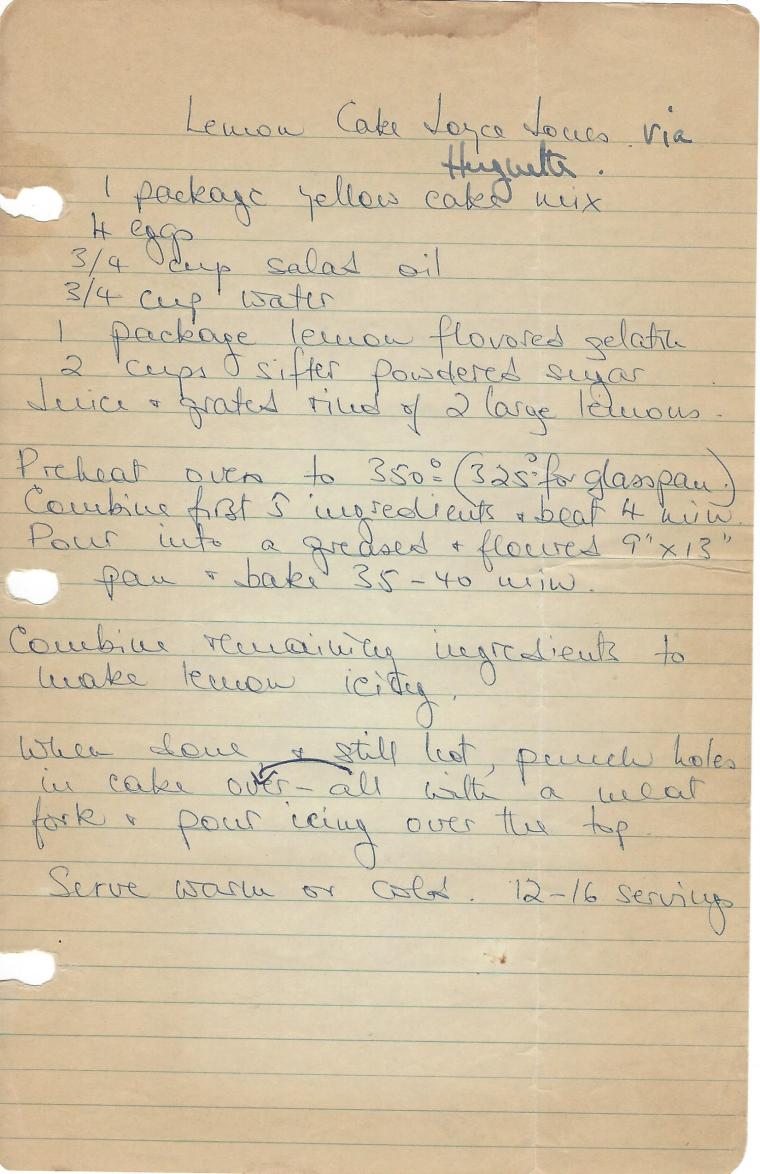 Lemon Cake Joyce Jones via
Huguette.
1 package yellow cake mix
4 eggs
3/4 cup salad oil
3/4 cup water
1 package lemon flavored gelatin
2 cups sifted powdered sugar
Juice + grated rind of 2 large lemons.
Preheat oven to 350° (325° for glass pan.)
Combine first 5 ingredients + beat 4 min.
Pour into a greased + floured 9" x 13"
pan + bake 35-40 min.
Combine remaining ingredients to
make lemon icing.
When done, + still hot, punch holes
in cake over-all with a meat
fork + pour icing over the top.
Serve warm or cold. 12-16 servings